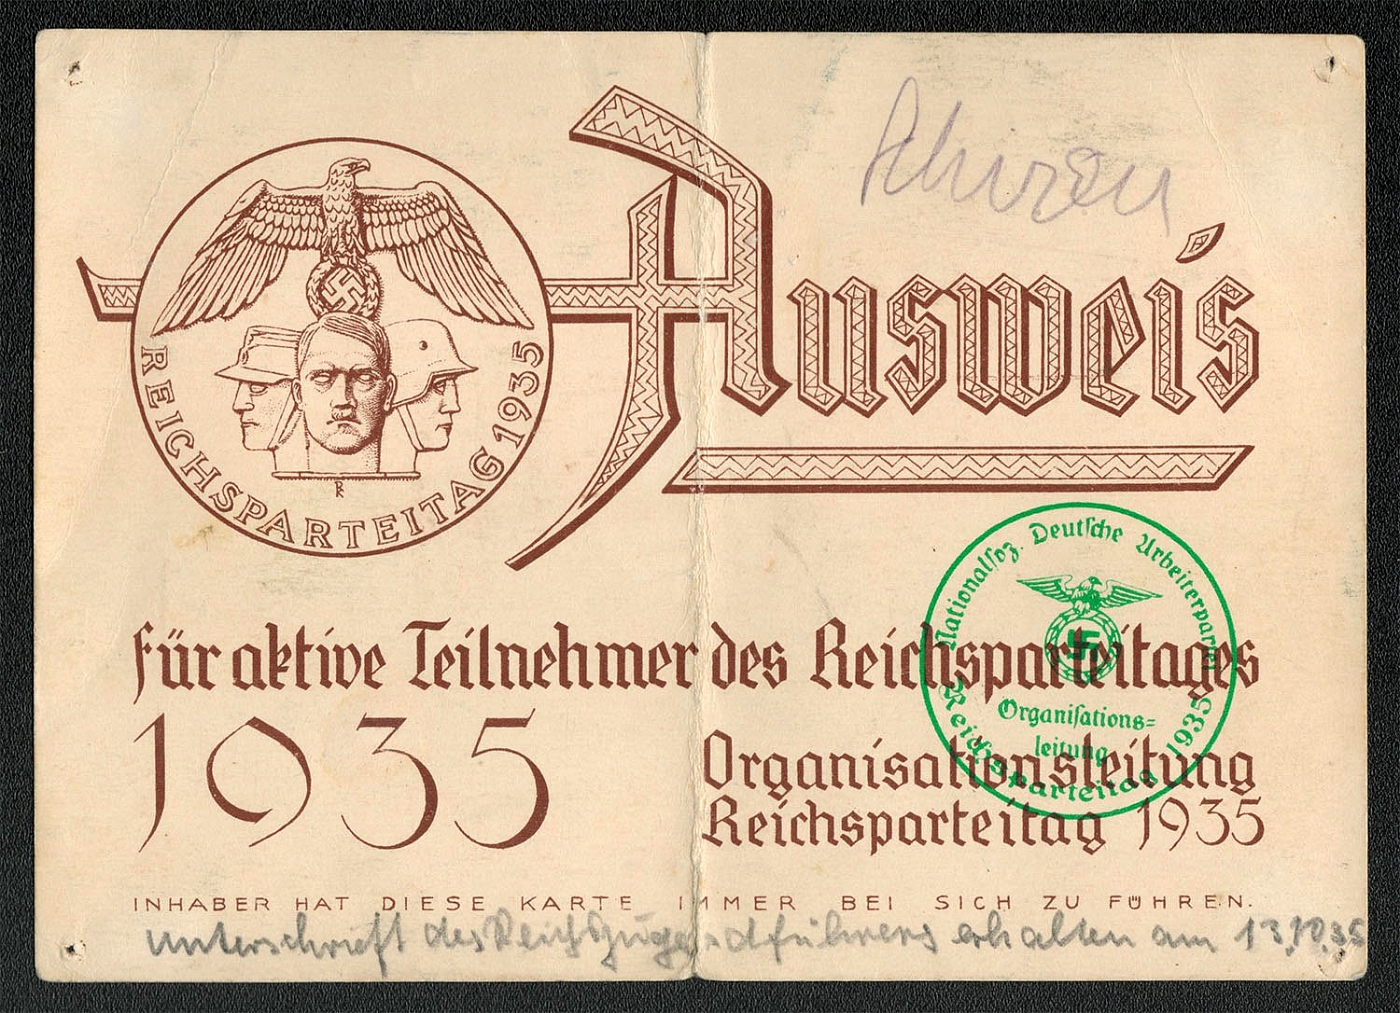 Ausweis
REICHSPARTEITAG 1935
für aktive Teilnehmer des Reichsparteitages
1935
Organisationsleitung
Reichsparteitag 1935
Nationalsoz. Deutsche Arbeiterpartei
Organisations=
leitung
Reichsparteitag 1935
INHABER HAT DIESE KARTE IMMER BEI SICH ZU FÜHREN.
Unterschrift des Reichsjugendführers erhalten am 13.10.35